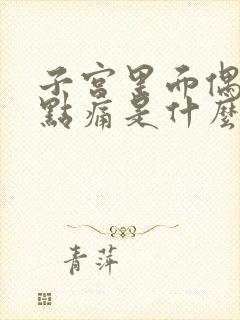 子宮里而偶
點痛是什麼
青萍